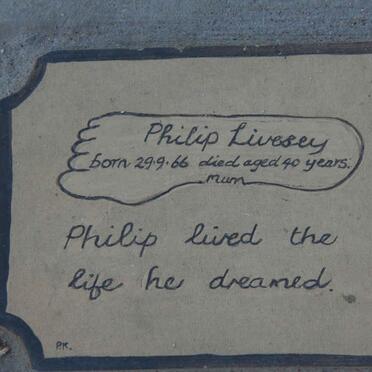 Philip Livesey
born 29.9.66 died aged 40 years.
mum
Philip lived the
life he dreamed.
P.K.